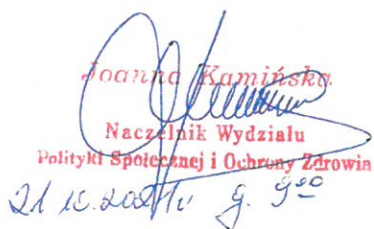 Joanna Kamińska
Naczelnik Wydziału
Polityki Społecznej i Ochrony Zdrowia
g. 9⁰⁰